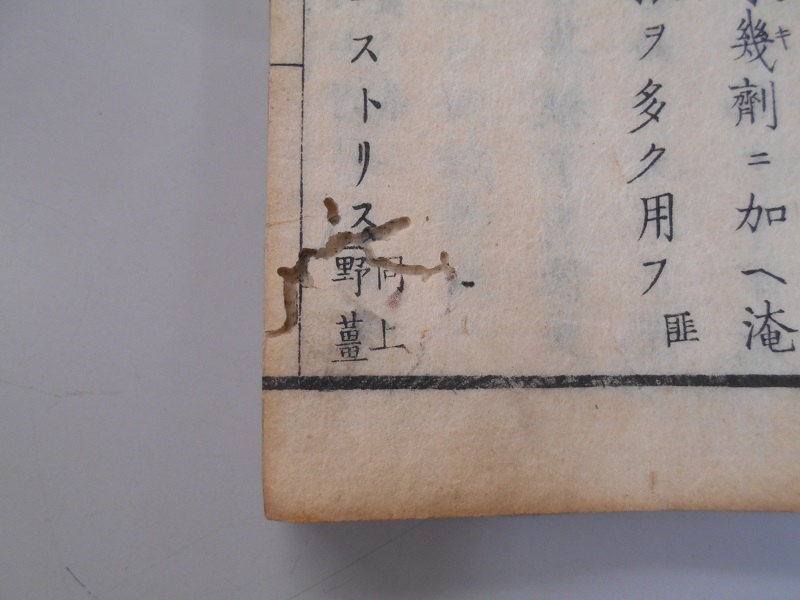 幾キ劑ニ加ヘ淹
ヲ多ク用フ 匪
ストリス 同上
野薑